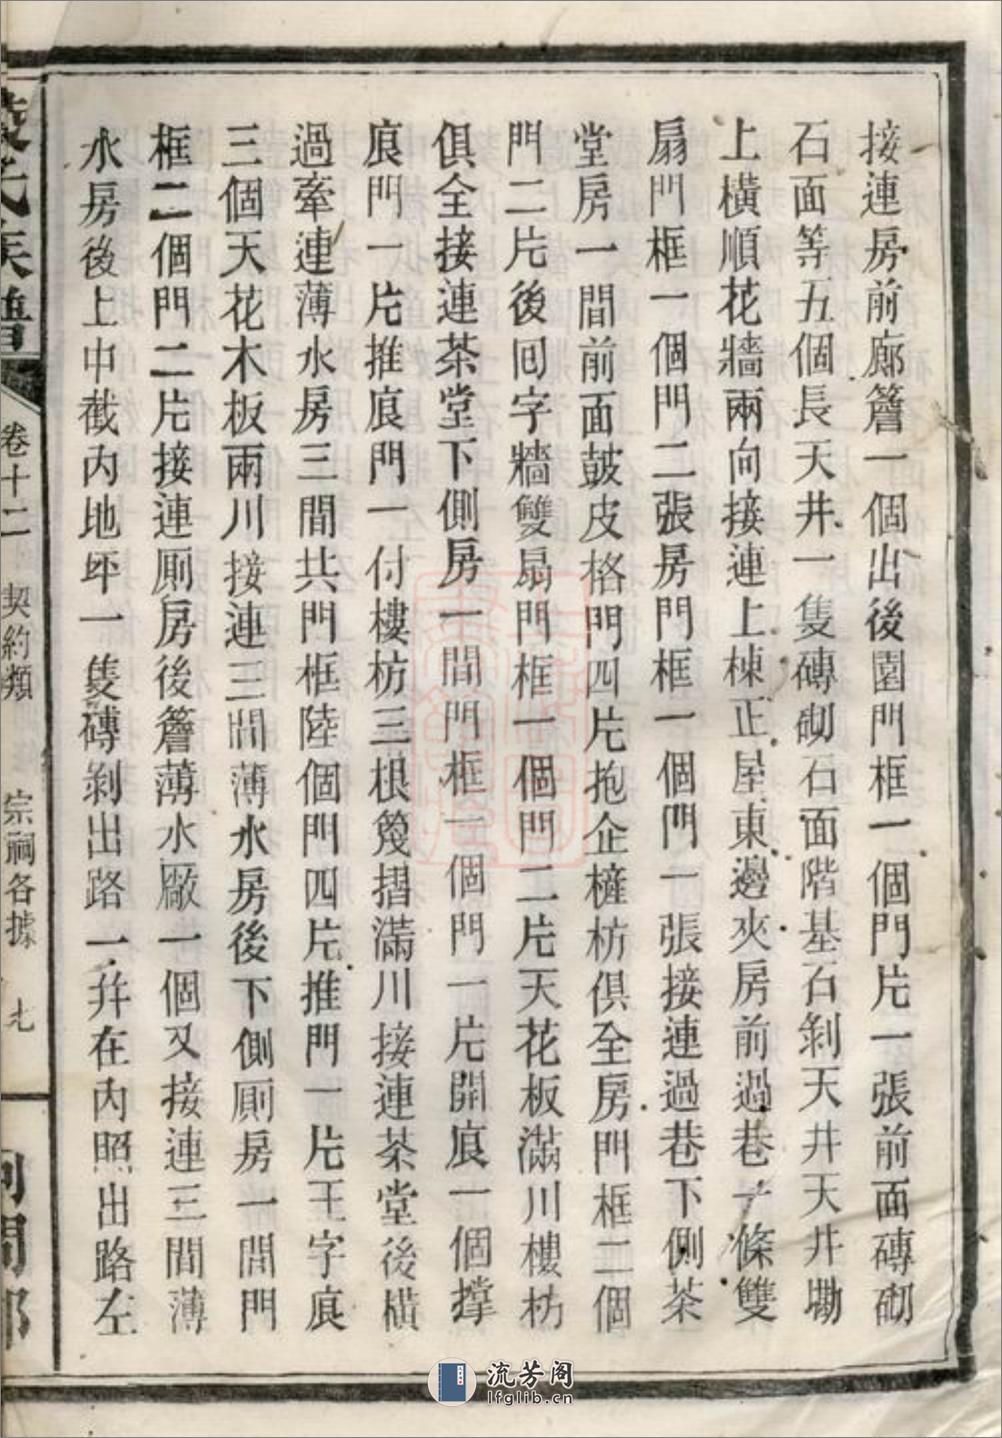 接連房前廊簷一個出後園門框一個門片一張前面磚砌
石面等五個長天井一隻磚砌石面階基石剁天井天井墈
上橫順花牆兩向接連上棟正屋東邊夾房前過巷一條雙
扇門框一個門二張房門框一個門一張接連過巷下側茶
堂房一間前面鼓皮格門四片抱企㰖枋俱全房門框二個
門二片後回字牆雙扇門框一個門二片天花板滿川樓枋
俱全接連茶堂下側房一間門框一個門一片開㡾一個撑
㡾門一片推㡾門一付樓枋三根篾摺滿川接連茶堂後橫
過牽連薄水房三間共門框陸個門四片推門一片王字㡾
三個天花木板兩川接連三間薄水房後下側厠房一間門
框二個門二片接連厠房後簷薄水厰一個又接連三間薄
水房後上中截內地坪一隻磚剁出路一并在內照出路左
氏族譜
卷十二
契約類
宗祠各據
七
河間郡
流芳阁
lfglib.cn